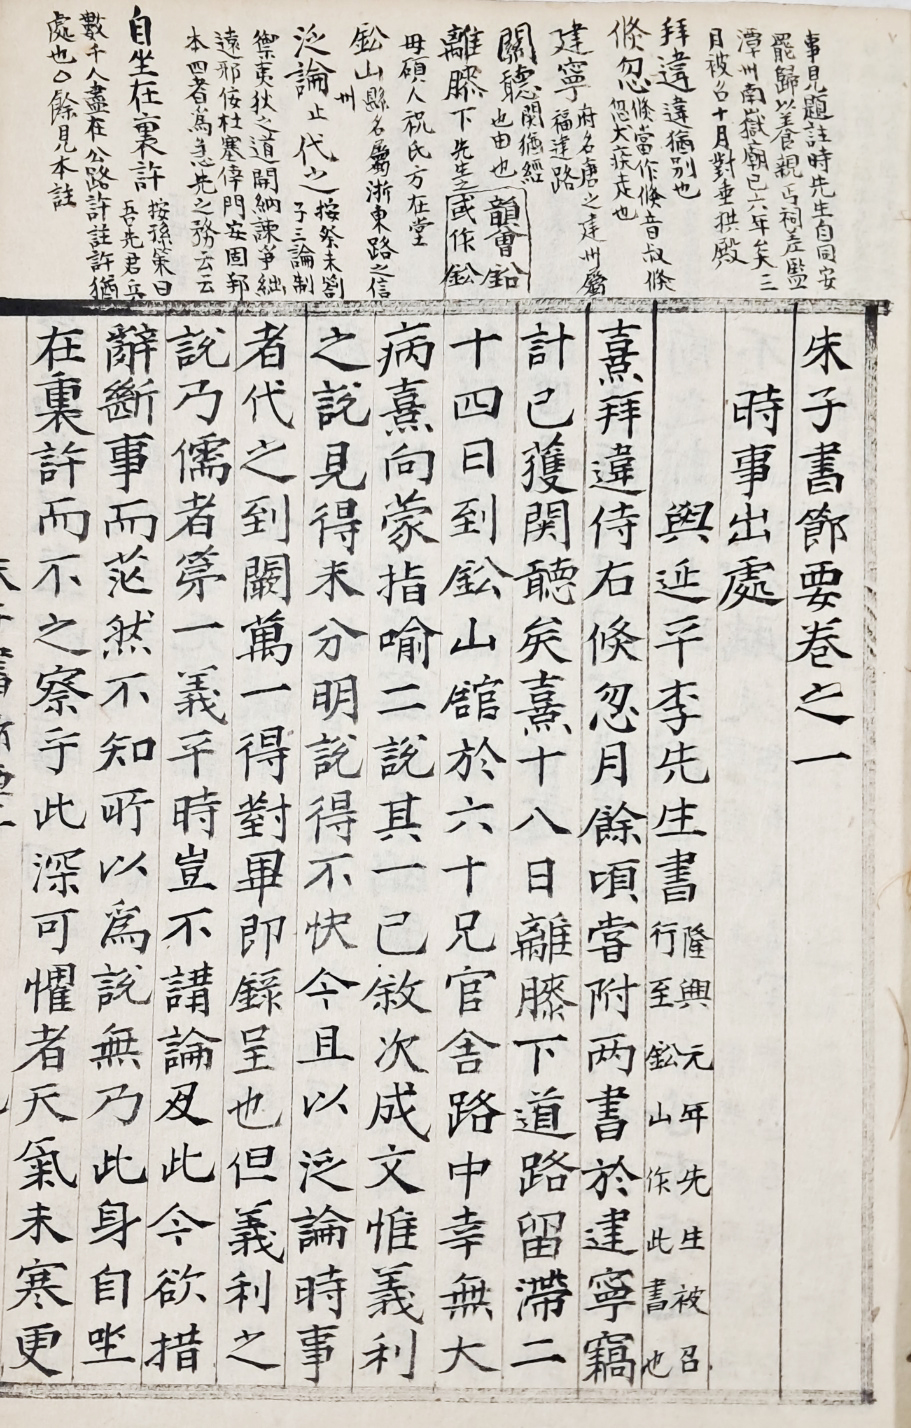 事見題註時先生自同安
罷歸以養親丐祠差監
潭州南嶽廟已六年矣三
月被召十月對垂拱殿
拜違 違猶別也
倏忽 倏當作倏音叔倏
忽犬疾走也
建寧 府名唐之建州屬
福建路
關聽 関猶經
也由也
離膝下 先生之
母碩人祝氏方在堂
韻會鈆
或作鈆
鈆山 縣名屬浙東路之信
州
泛論 止代之 按癸未劄
子三論制
禦夷狄之道開納諫爭絀
遠邪佞杜塞倖門安固邦
本四者爲急先之務云云
自坐在裏許 按孫策曰
吾先君兵
數千人盡在公路許註許猶
處也○餘見本註
朱子書節要卷之一
時事出處
與延平李先生書 隆興元年先生被召
行至鈆山作此書也
熹拜違侍右倏忽月餘頃嘗附两書於建寧竊
計已獲関聽矣熹十八日離膝下道路留滯二
十四日到鈆山舘於六十兄官舎路中幸無大
病熹向蒙指喻二說其一已敘次成文惟義利
之說見得未分明說得不快今且以泛論時事
者代之到闕萬一得對畢即錄呈也但義利之
說乃儒者第一義平時豈不講論及此今欲措
辭斷事而茫然不知所以爲說無乃此身自坐
在裏許而不之察乎此深可懼者天氣未寒更